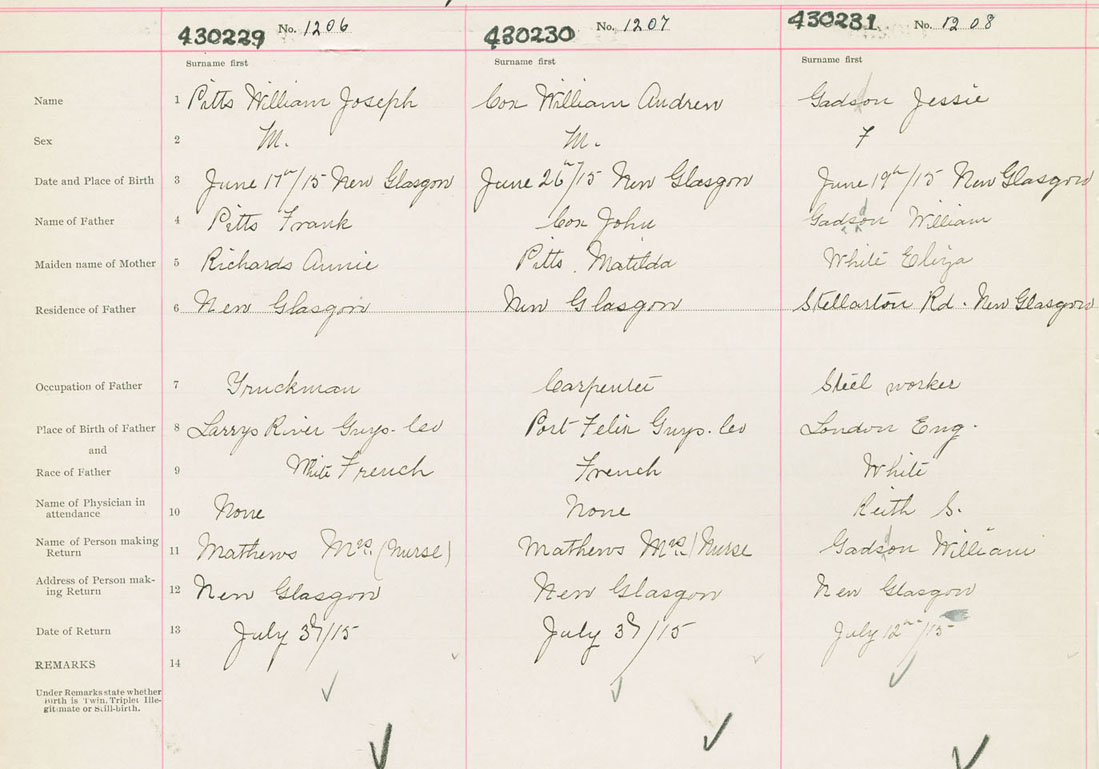 430229 No. 1206 430230 No. 1207 430231 No. 1208
Surname first Surname first Surname first
Name 1 Pitts William Joseph Cox William Andrew Gadson Jessie
Sex 2 M. M. F
Date and Place of Birth 3 June 17th/15 New Glasgow June 26th/15 New Glasgow June 19th/15 New Glasgow
Name of Father 4 Pitts Frank Cox John Gadson William
Maiden name of Mother 5 Richards Annie Pitts Matilda White Eliza
Residence of Father 6 New Glasgow New Glasgow Stellarton Rd. New Glasgow
Occupation of Father 7 Truckman Carpenter Steel worker
Place of Birth of Father 8 Larrys River Guys. Co Port Felix Guys. Co London Eng.
and
Race of Father 9 White French French White
Name of Physician in
attendance 10 None None Keith S.
Name of Person making
Return 11 Mathews Mrs. (Nurse) Mathews Mrs.) Nurse Gadson William
Address of Person mak-
ing Return 12 New Glasgow New Glasgow New Glasgow
Date of Return 13 July 3rd/15 July 3rd/15 July 12th/15
REMARKS 14
Under Remarks state whether
birth is Twin, Triplet Ille-
gitimate or Still-birth.